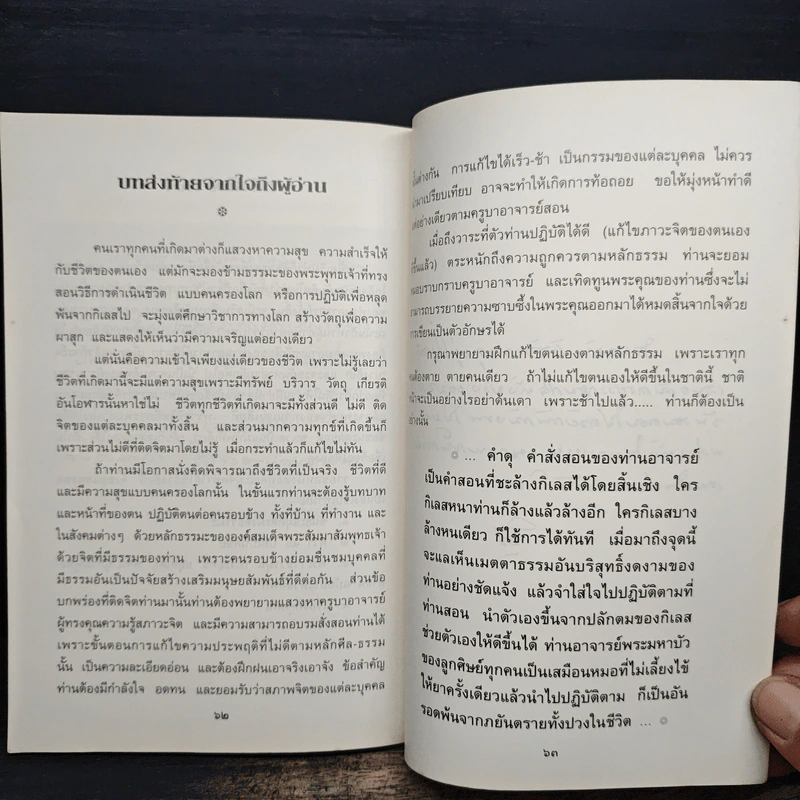 บทส่งท้ายจากใจถึงผู้อ่าน
คนเราทุกคนที่เกิดมาต่างก็แสวงหาความสุข ความสำเร็จให้
กับชีวิตของตนเอง แต่มักจะมองข้ามธรรมะของพระพุทธเจ้าที่ทรง
สอนวิธีการดำเนินชีวิต แบบคนครองโลก หรือการปฏิบัติเพื่อหลุด
พ้นจากกิเลสไป จะมุ่งแต่ศึกษาวิชาการทางโลก สร้างวัตถุเพื่อความ
ผาสุก และแสดงให้เห็นว่ามีความเจริญแต่อย่างเดียว
แต่นั่นคือความเข้าใจเพียงแง่เดียวของชีวิต เพราะไม่รู้เลยว่า
ชีวิตที่เกิดมานี้จะมีแต่ความสุขเพราะมีทรัพย์ บริวาร วัตถุ เกียรติ
อันโอฬารนั้นหาใช่ไม่ ชีวิตทุกชีวิตที่เกิดมาจะมีทั้งส่วนดี ไม่ดี ติด
จิตของแต่ละบุคคลมาทั้งสิ้น และส่วนมากความทุกข์ที่เกิดขึ้นก็
เพราะส่วนไม่ดีที่ติดจิตมาโดยไม่รู้ เมื่อกระทำแล้วก็แก้ไขไม่ทัน
ถ้าท่านมีโอกาสนั่งคิดพิจารณาถึงชีวิตที่เป็นจริง ชีวิตที่ดี
และมีความสุขแบบคนครองโลกนั้น ในขั้นแรกท่านจะต้องรู้บทบาท
และหน้าที่ของตน ปฏิบัติตนต่อคนรอบข้าง ทั้งที่บ้าน ที่ทำงาน และ
ในสังคมต่างๆ ด้วยหลักธรรมะขององค์สมเด็จพระสัมมาสัมพุทธเจ้า
ด้วยจิตที่มีธรรมของท่าน เพราะคนรอบข้างย่อมชื่นชมบุคคลที่
มีธรรมอันเป็นปัจจัยสร้างเสริมมนุษยสัมพันธ์ที่ดีต่อกัน ส่วนข้อ
บกพร่องที่ติดจิตท่านมานั้นท่านต้องพยายามแสวงหาครูบาอาจารย์
ผู้ทรงคุณความรู้สภาวะจิต และมีความสามารถอบรมสั่งสอนท่านได้
เพราะขั้นตอนการแก้ไขความประพฤติที่ไม่ดีตามหลักศีล-ธรรม
นั้น เป็นความละเอียดอ่อน และต้องฝึกฝนเอาจริงเอาจัง ข้อสำคัญ
ท่านต้องมีกำลังใจ อดทน และยอมรับว่าสภาพจิตของแต่ละบุคคล
๖๒
ต่างกัน การแก้ไขได้เร็ว-ช้า เป็นกรรมของแต่ละบุคคล ไม่ควร
มาเปรียบเทียบ อาจจะทำให้เกิดการท้อถอย ขอให้มุ่งหน้าทำดี
อย่างเดียวตามครูบาอาจารย์สอน
เมื่อถึงวาระที่ตัวท่านปฏิบัติได้ดี (แก้ไขภาวะจิตของตนเอง
ขึ้นแล้ว) ตระหนักถึงความถูกควรตามหลักธรรม ท่านจะยอม
ราบกราบครูบาอาจารย์ และเทิดทูนพระคุณของท่านซึ่งจะไม่
สามารถบรรยายความซาบซึ้งในพระคุณออกมาได้หมดสิ้นจากใจด้วย
การเขียนเป็นตัวอักษรได้
กรุณาพยายามฝึกแก้ไขตนเองตามหลักธรรม เพราะเราทุก
คนต้องตาย ตายคนเดียว ถ้าไม่แก้ไขตนเองให้ดีขึ้นในชาตินี้ ชาติ
หน้าจะเป็นอย่างไรอย่าด้นเดา เพราะช้าไปแล้ว..... ท่านก็ต้องเป็น
อย่างนั้น
... คำดุ คำสั่งสอนของท่านอาจารย์
เป็นคำสอนที่ชะล้างกิเลสได้โดยสิ้นเชิง ใคร
กิเลสหนาท่านก็ล้างแล้วล้างอีก ใครกิเลสบาง
ล้างหนเดียว ก็ใช้การได้ทันที เมื่อมาถึงจุดนี้
จะแลเห็นเมตตาธรรมอันบริสุทธิ์งดงามของ
ท่านอย่างชัดแจ้ง แล้วจำใส่ใจไปปฏิบัติตามที่
ท่านสอน นำตัวเองขึ้นจากปลักตมของกิเลส
ช่วยตัวเองให้ดีขึ้นได้ ท่านอาจารย์พระมหาบัว
ของลูกศิษย์ทุกคนเป็นเสมือนหมอที่ไม่เลี้ยงไข้
ให้ยาครั้งเดียวแล้วนำไปปฏิบัติตาม ก็เป็นอัน
รอดพ้นจากภยันตรายทั้งปวงในชีวิต ...
๖๓